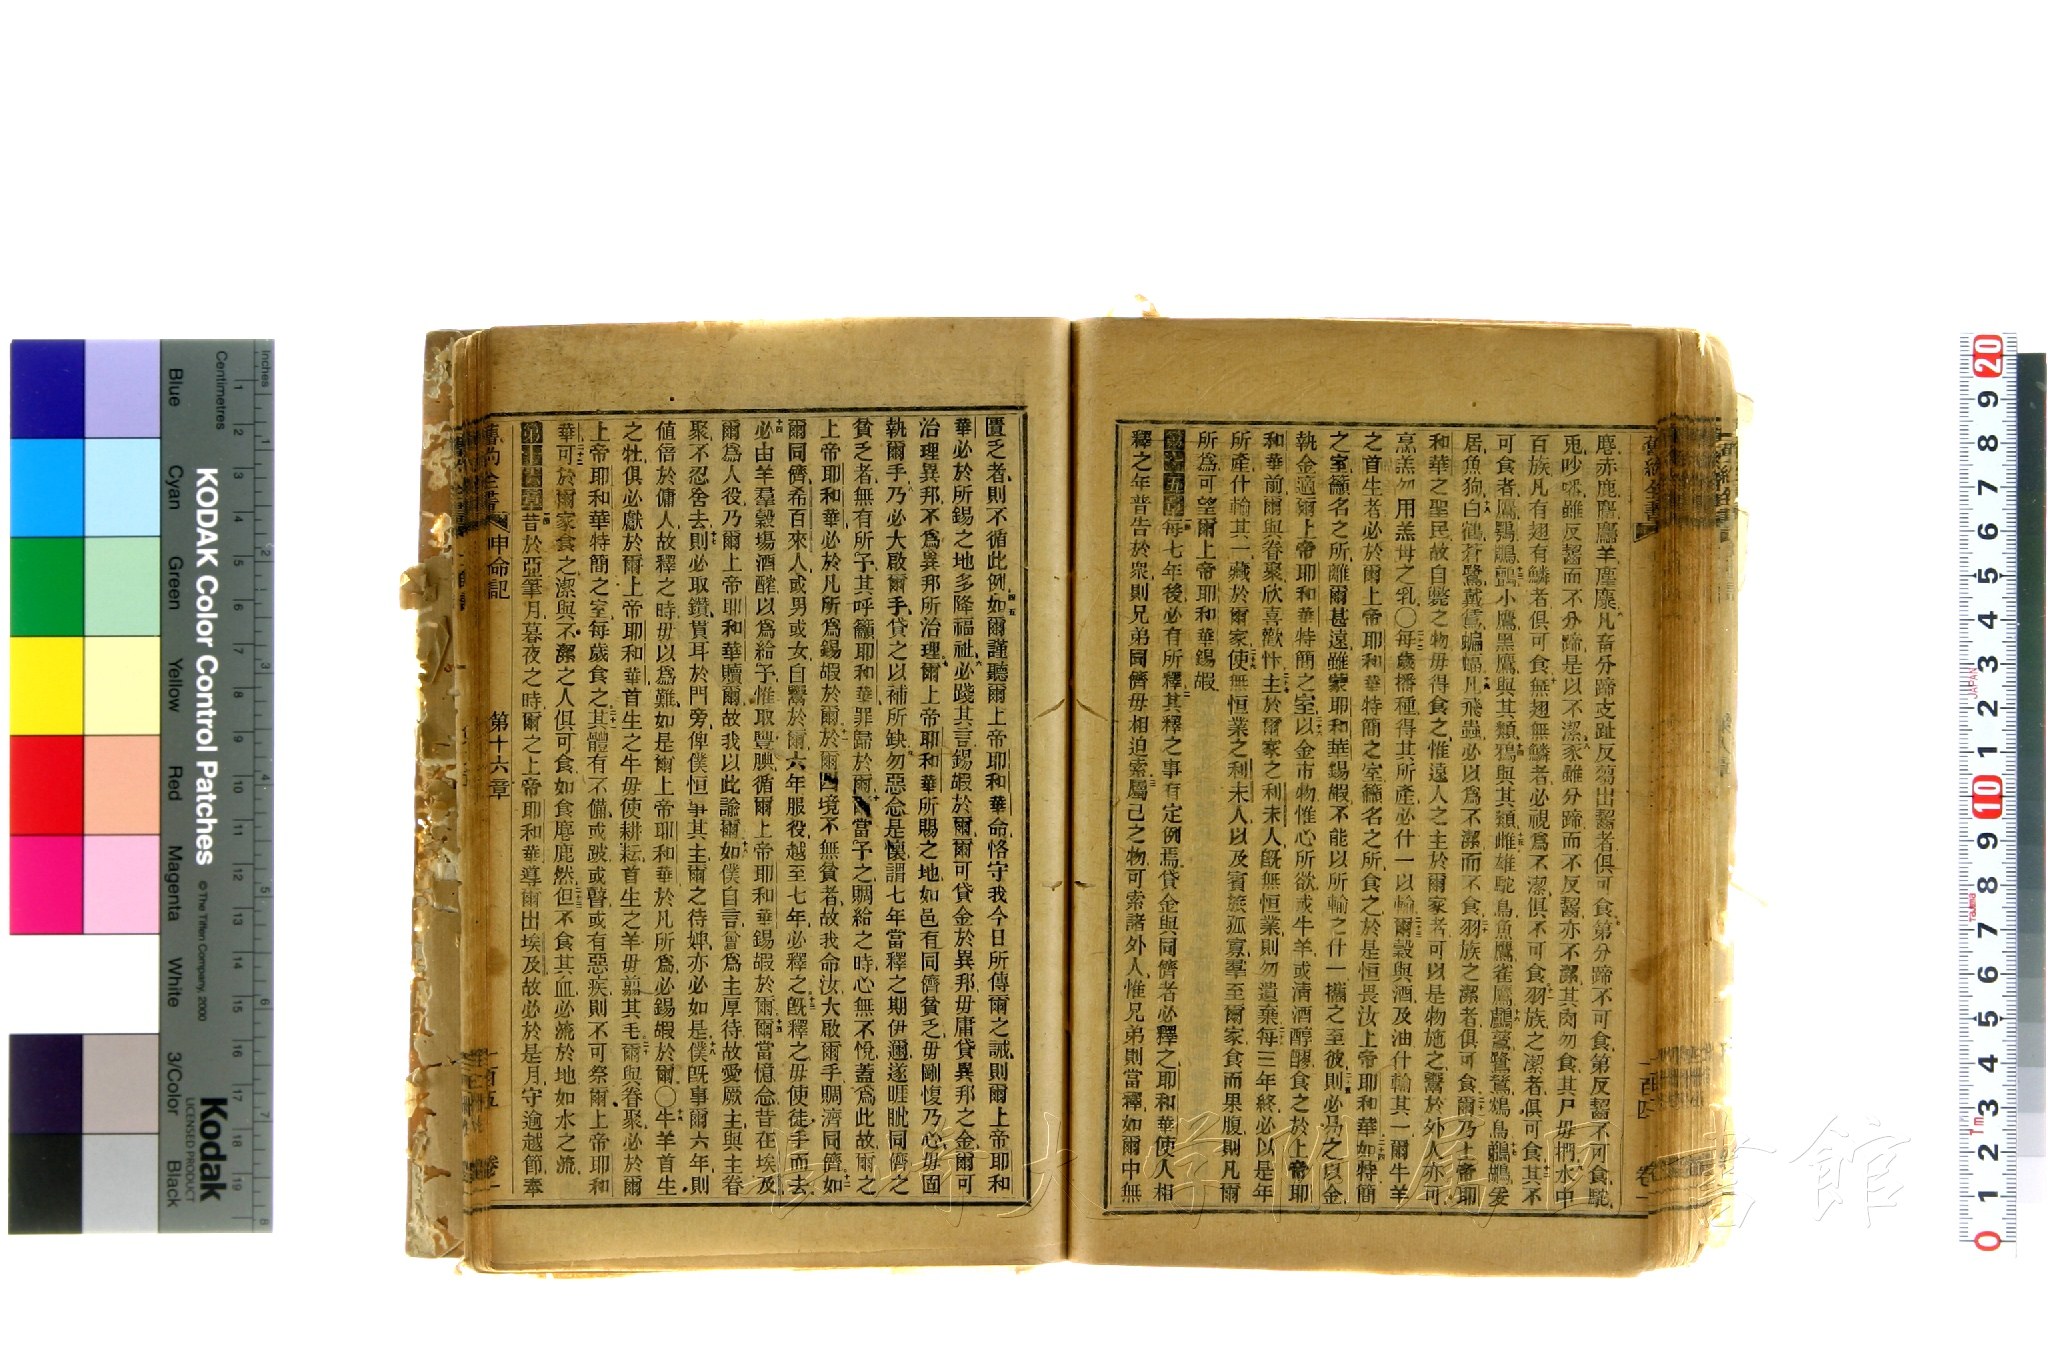 麀赤鹿麕麢羊麈麋凡畜分蹄支趾反芻出齝者俱可食第分蹄不可食第反齝不可食駝
兎吵噃雖反齝而不分蹄是以不潔豕雖分蹄而不反齝亦不潔其肉勿食其尸毋捫水中
百族凡有翅有鱗者俱可食無翅無鱗者必視爲不潔俱不可食羽族之潔者俱可食其不
可食者鷹鶚鵰鸇小鷹黑鷹與其類鴉與其類雌雄駝鳥魚鷹雀鷹鸕鶿鷺鶖鷦鳥鵜鶘爰
居魚狗白鶴蒼鷺戴鵀蝙蝠凡飛蟲必以爲不潔而不食羽族之潔者俱可食爾乃上帝耶
和華之聖民故自斃之物毋得食之惟遠人之主於爾家者可以是物施之鬻於外人亦可
烹羔勿用羔母之乳〇每歲播種得其所產必什一以輸爾穀與酒及油什輸其一爾牛羊
之首生者必於爾上帝耶和華特簡之室籲名之所食之於是恒畏汝上帝耶和華如特簡
之室籲名之所離爾甚遠雖蒙耶和華錫嘏不能以所輸之什一攜之至彼則必易之以金
執金適爾上帝耶和華特簡之室以金市物惟心所欲或牛羊或清酒醇醪食之於上帝耶
和華前爾與眷聚欣喜歡忭主於爾家之利未人旣無恒業則勿遺棄每三年終必以是年
所產什輸其一藏於爾家使無恒業之利未人以及賓旅孤寡羣至爾家食而果腹則凡爾
所爲可望爾上帝耶和華錫嘏
第十五章每七年後必有所釋其釋之事有定例焉貸金與同儕者必釋之耶和華使人相
釋之年普告於衆則兄弟同儕毋相迫索屬己之物可索諸外人惟兄弟則當釋如爾中無
一百四 卷一
匱乏者則不循此例如爾謹聽爾上帝耶和華命恪守我今日所傳爾之誡則爾上帝耶和
華必於所錫之地多降福祉必踐其言錫嘏於爾爾可貸金於異邦毋庸貸異邦之金爾可
治理異邦不爲異邦所治理爾上帝耶和華所賜之地如邑有同儕貧乏毋剛愎乃心毋面
執爾手乃必大啟爾手貸之以補所缺勿惡念是懷謂七年當釋之期伊邇遂睚眦同儕之
貧乏者無有所予其呼籲耶和華罪歸於爾爾當予之賙給之時心無不悅蓋爲此故爾之
上帝耶和華必於凡所爲錫嘏於爾於爾四境不無貧者故我命汝大啟爾手賙濟同儕如
爾同儕希百來人或男或女自鬻於爾六年服役越至七年必釋之旣釋之毋使徒手而去
必由羊羣穀場酒醡以爲給予惟取豐腆循爾上帝耶和華錫嘏於爾爾當憶念昔在埃及
爾爲人役乃爾上帝耶和華贖爾故我以此諭爾如僕自言曾爲主厚待故愛厥主與主眷
聚不忍舍去則必取鑽貫耳於門旁俾僕恒事其主爾之待婢亦必如是僕旣事爾六年則
値倍於傭人故釋之時毋以爲難如是爾上帝耶和華於凡所爲必錫嘏於爾〇牛羊首生
之牡俱必獻於爾上帝耶和華首生之牛毋使耕耘首生之羊毋翦其毛爾與眷聚必於爾
上帝耶和華特簡之室每歲食之其體有不備或跛或瞽或有惡疾則不可祭爾上帝耶和
華可於爾家食之潔與不潔之人俱可食如食麀鹿然但不食其血必流於地如水之流
第十六章昔於亞筆月暮夜之時爾之上帝耶和華導爾出埃及故必於是月守逾越節奉
舊約全書 申命記 第十六章 一百五 卷一
大學附属図書館
KODAK Color Control Patches
© The Tiffen Company, 2000
Kodak
LICENSED PRODUCT
Inches
Centimetres
Blue
Cyan
Green
Yellow
Red
Magenta
White
3/Color
Black
JAPAN